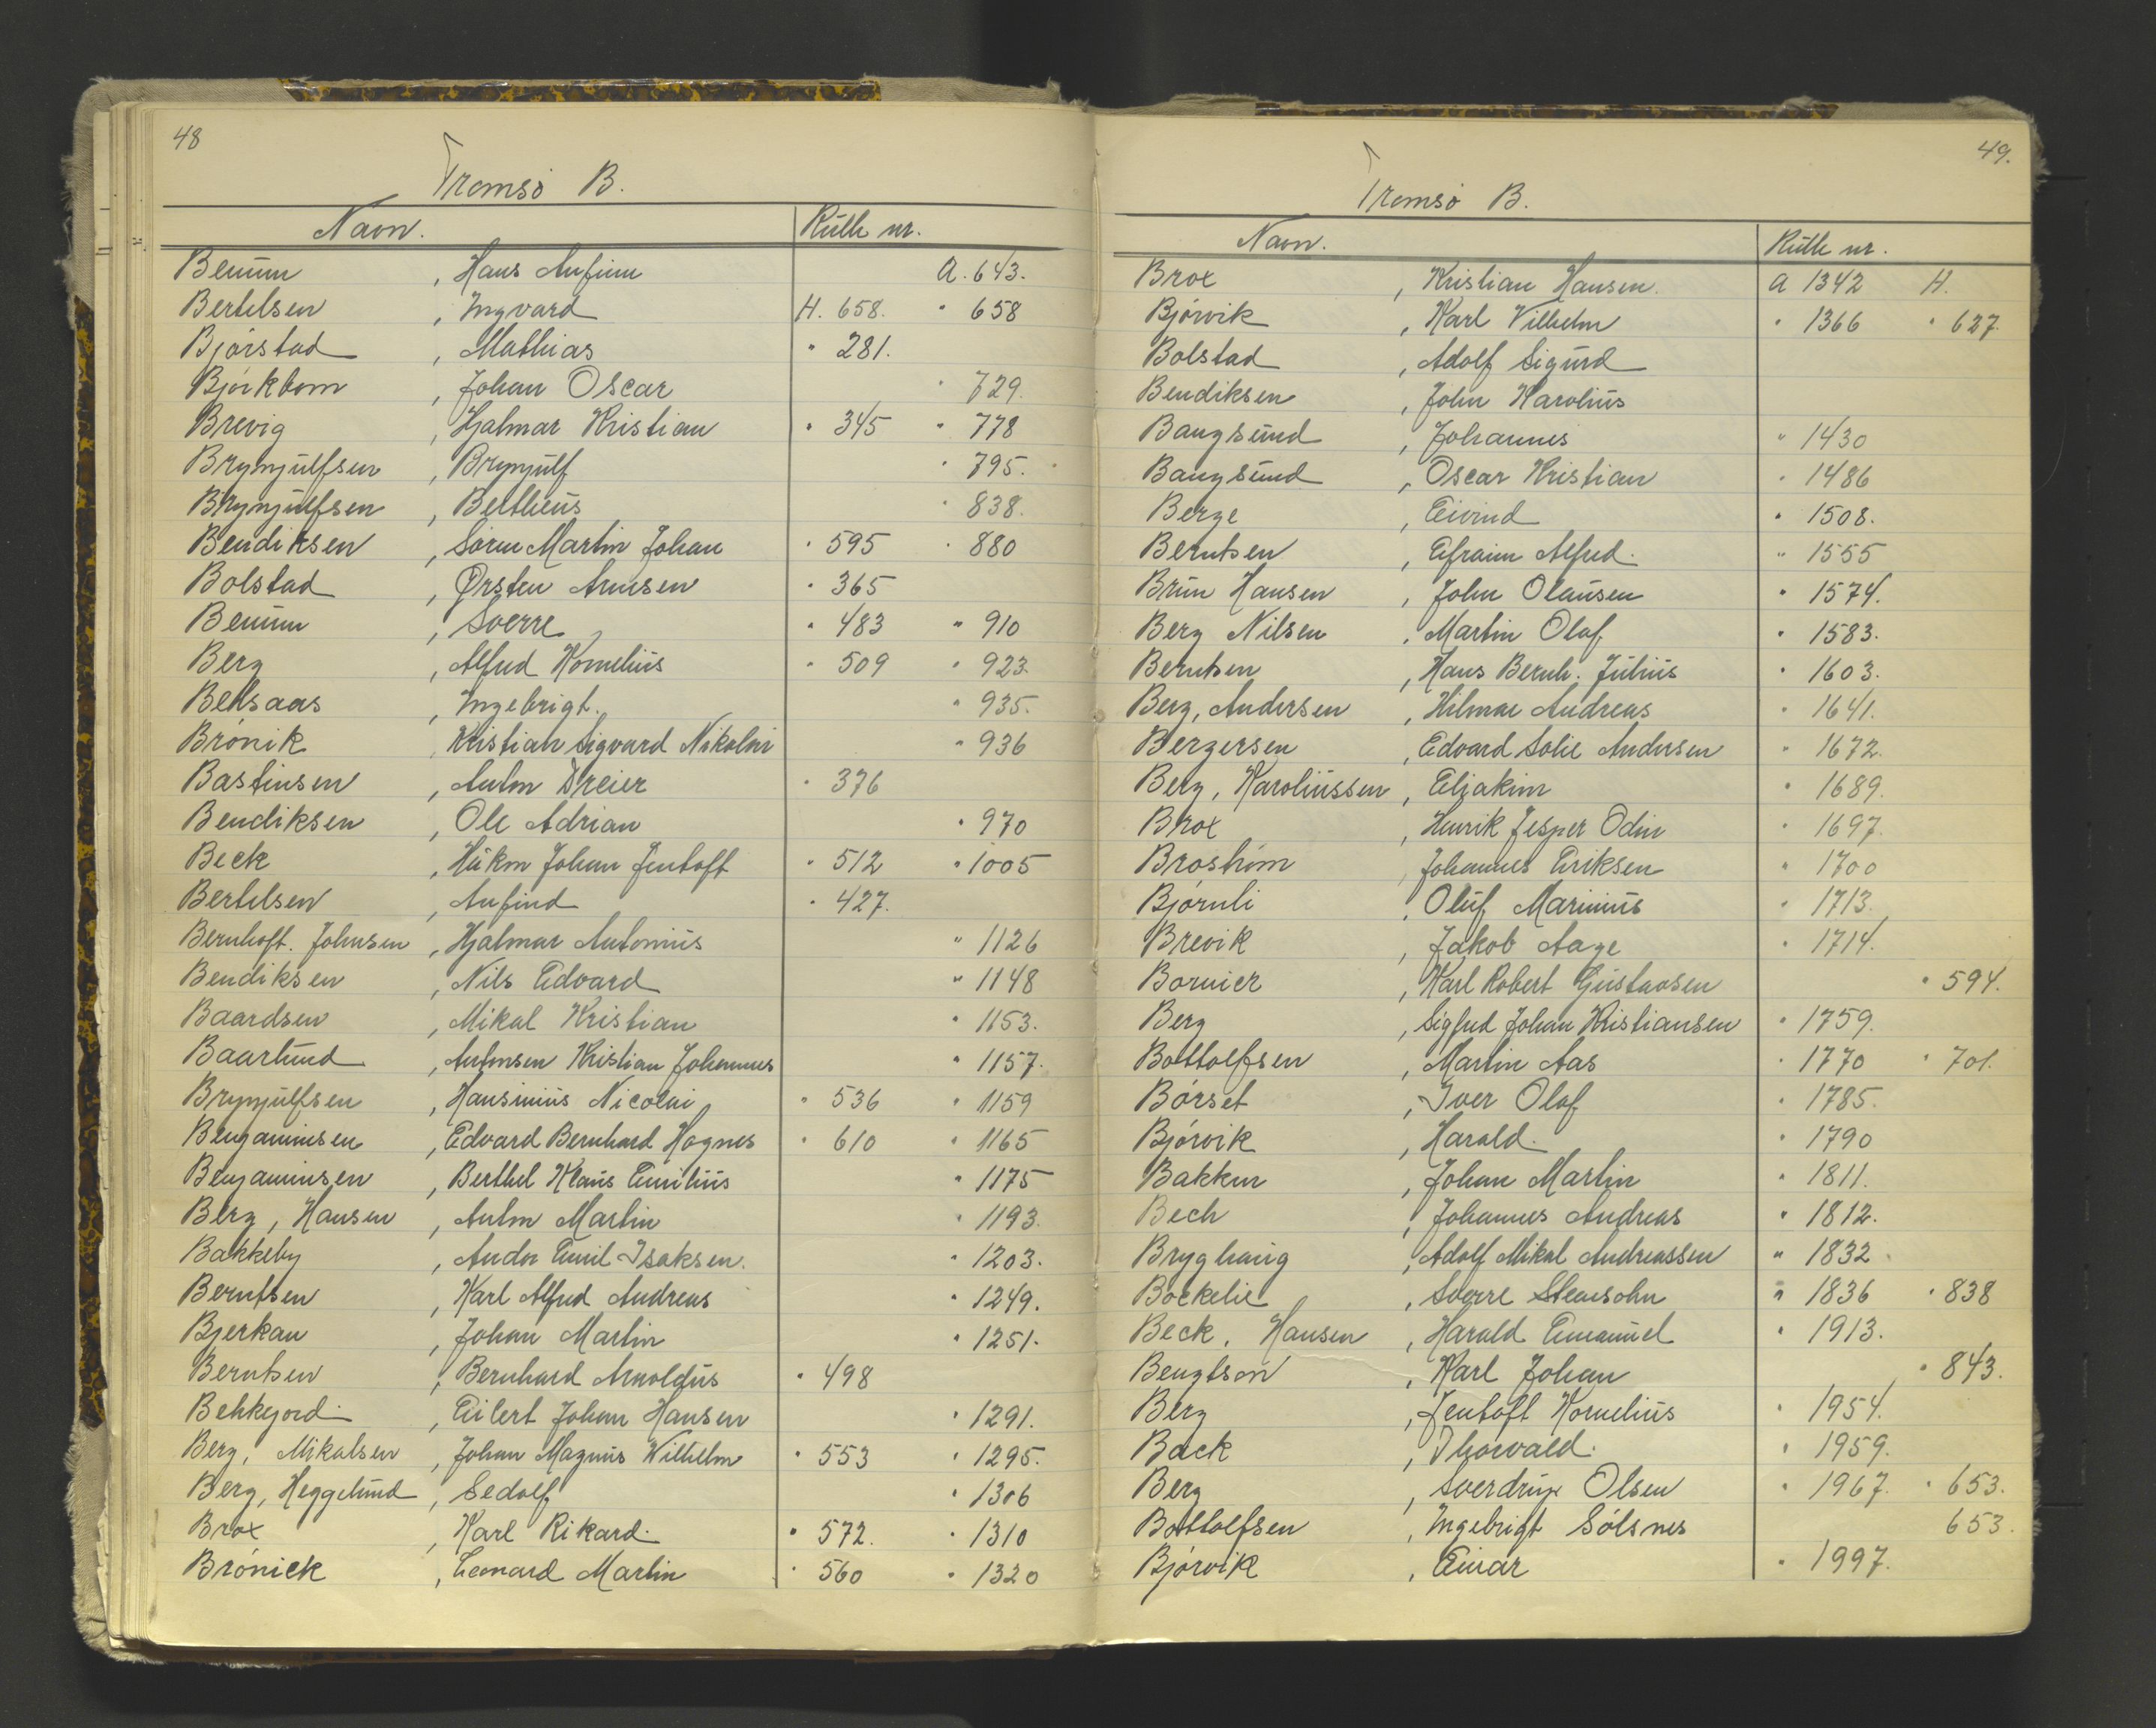 48
Tromsø B.
Navn. Rulle nr.
Benum , Hans Anfinn A. 643.
Bertelsen , Ingvard H. 658. " 658
Bjørstad , Mathias " 281.
Bjørkbom , Johan Oscar " 729.
Brevig , Hjalmar Kristian " 345 " 778
Brynjulfsen , Brynjulf " 795.
Brynjulfsen , Betheus " 838.
Bendiksen , Søren Martin Johan " 595 " 880
Bolstad , Ørsten Arnesen " 365
Benum , Sverre " 483 " 910
Berg , Alfred Kornelius " 509 " 923.
Belsaas , Ingebrigt. " 935.
Brónik , Kristian Sigvard Nikolai " 936
Bastinsen , Anton Dreier " 376
Bendiksen , Ole Adrian " 970
Beck , Håkon Johan Jentoft " 512 " 1005
Bertelsen , Anfind " 427.
Bernhoft. Johnsen , Hjalmar Antonius " 1126
Bendiksen , Nils Edvard " 1148
Baardsen , Mikal Kristian " 1153.
Baarlund , Antonsen Kristian Johannes " 1157.
Brynjulfsen , Hansinius Nicolai " 536 " 1159
Benjaminsen , Edvard Bernhard Hognes " 610 " 1165
Benjaminsen , Berthel Klaus Emilius " 1175
Berg, Hansen , Anton Martin " 1193.
Bakkeby , Andor Emil Isaksen. " 1203.
Berntsen , Karl Alfred Andreas " 1249.
Bjerkan , Johan Martin " 1251.
Berntsen , Bernhard Arnoldus " 498
Behkejord. , Eilert Johan Hansen " 1291.
Berg, Mikalsen , Johan Magnus Wilhelm " 553 " 1295.
Berg, Heggelund , Sedolf " 1306
Brox , Karl Rikard. " 572. " 1310
Brónick , Leonard Martin " 560 " 1320
49.
Tromsø B.
Navn. Rulle nr.
Brox , Kristian Hansen. A 1342 H.
Bjórvik , Karl Vilhelm " 1366 " 627.
Bolstad , Adolf Sigurd
Bendiksen , John Karolius
Bangsund , Johannes " 1430
Bangsund , Oscar Kristian " 1486
Berge , Eivind " 1508.
Berntsen , Efraim Alfred. " 1555
Brun Hansen , John Olausen " 1574.
Berg Nilsen , Martin Olaf " 1583.
Berntsen , Hans Bernh. Julius " 1603.
Berg, Andersen , Hilmar Andreas " 1641.
Bergersen , Edvard Solie Andersen " 1672.
Berg, Karoliussen , Eljakim " 1689.
Brox , Henrik Jesper Odin " 1697.
Broström , Johannes Eriksen " 1700
Bjórnli , Oluf Marinius " 1713.
Brevik , Jakob Aage " 1714.
Bornier , Karl Robert Gustavsen " 594.
Berg , Sigfred Johan Kristiansen " 1759.
Bottolfsen , Martin Aas " 1770 " 701.
Bórset , Iver Olaf " 1785.
Bjórvik , Harald. " 1790
Bakken , Johan Martin " 1811.
Bech , Johannes Andreas " 1812.
Bryghaug , Adolf Mikal Andreassen " 1832
Bockelie , Sverre Stensohn " 1836 " 838
Beck, Hansen , Harald Emanuel " 1913.
Bengtson , Karl Johan " 843.
Berg , Jentoft Kornelius " 1954.
Back , Thorvald. " 1959.
Berg , Sverdrup Olsen " 1967. " 653.
Bottolfsen , Ingebrigt Sólsnes 653.
Bjórvik , Einar " 1997.